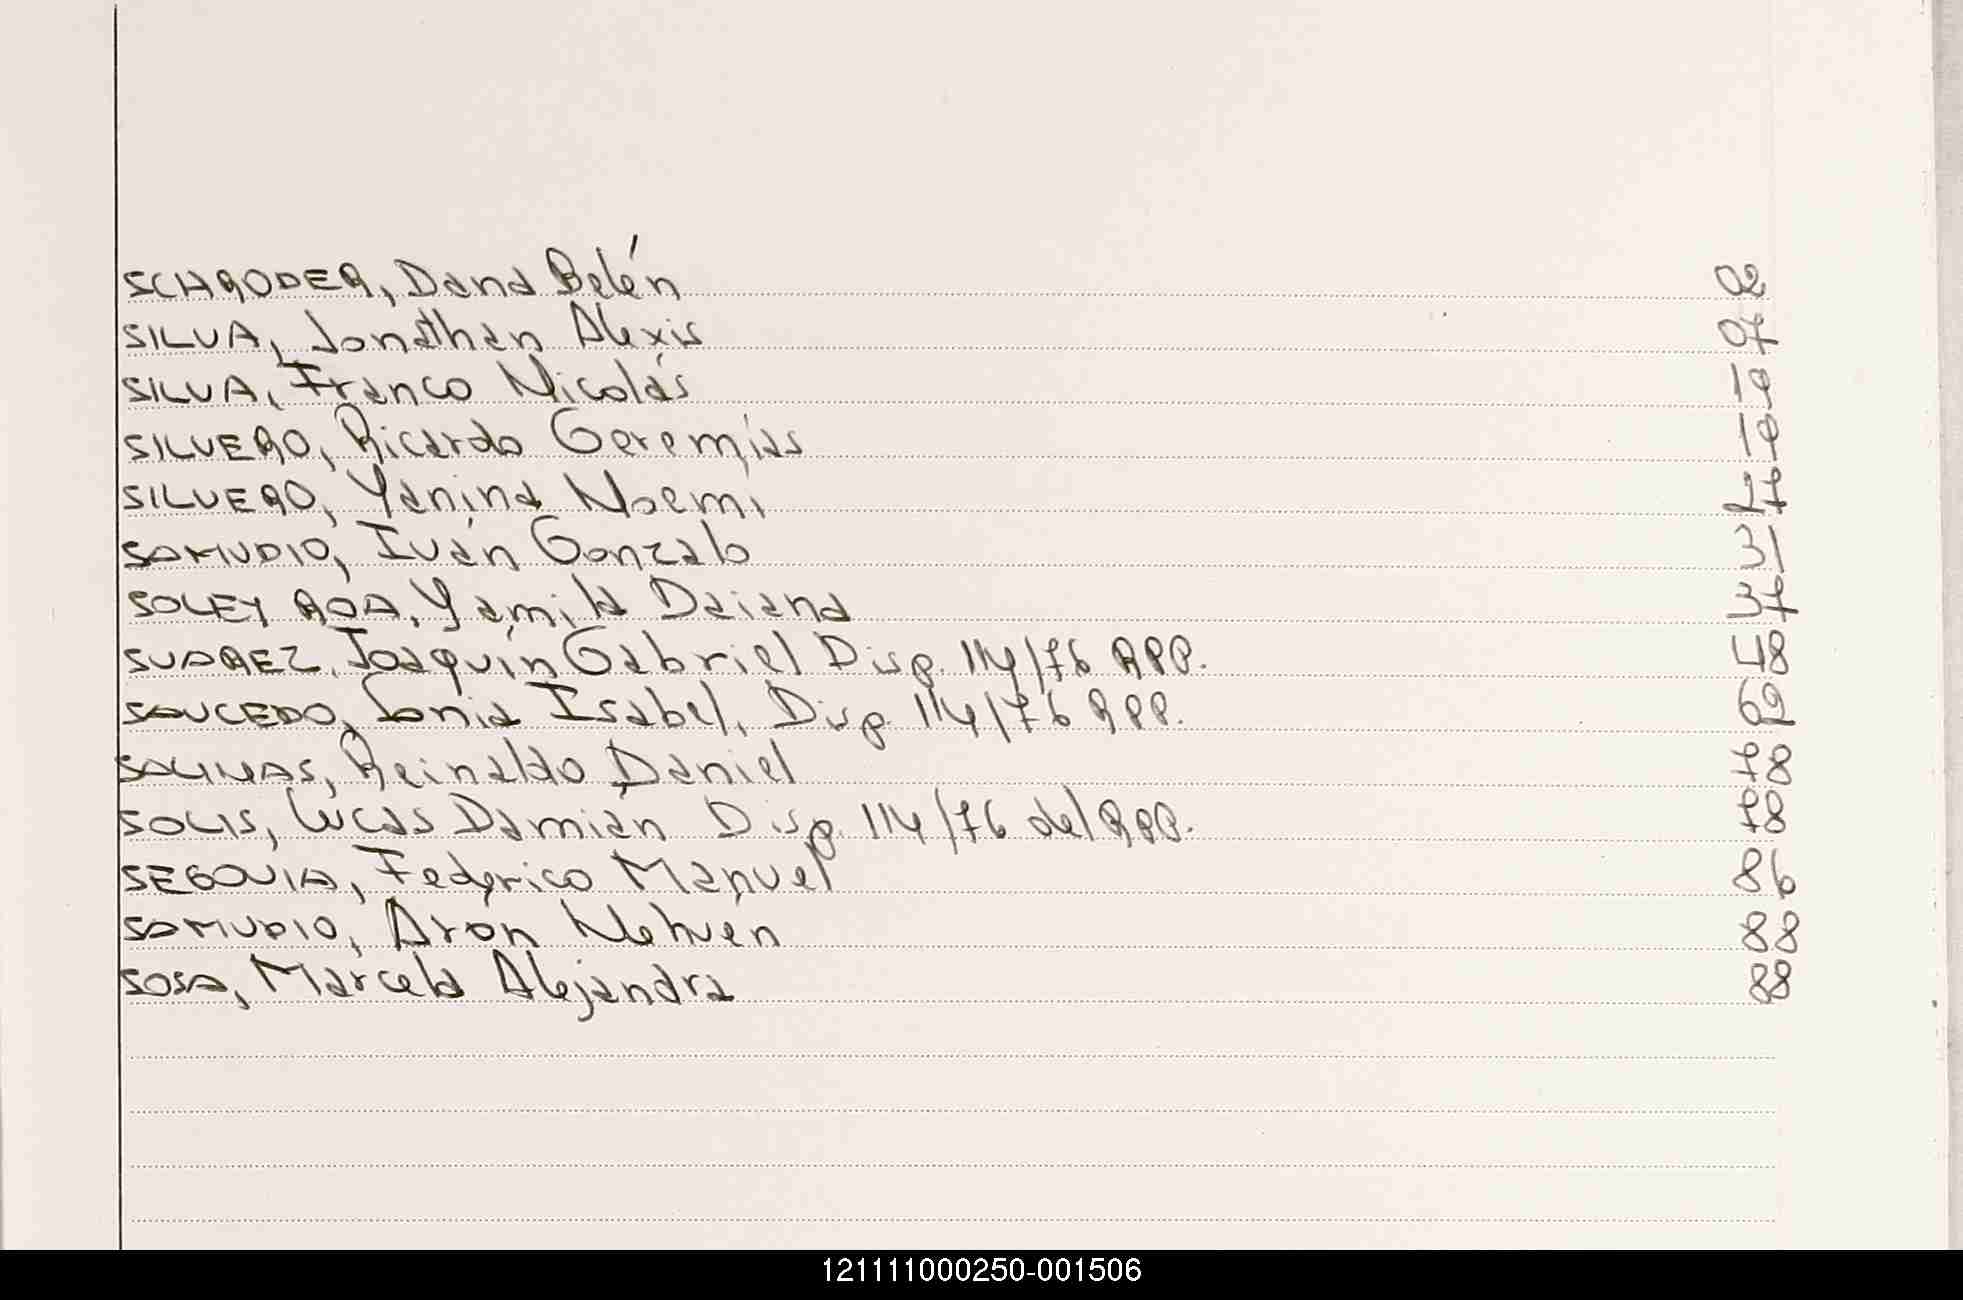 SCHRODER, Dana Belén 02
SILVA, Jonathan Alexis 07
SILVA, Franco Nicolás 10
SILVERO, Ricardo Geremías 10
SILVERO, Yanina Noemi 27
SAMUDIO, Iván Gonzalo 31
SOLEY ROA, Yamila Daiana 37
SUAREZ, Joaquín Gabriel Disp. 114/76 RPP. 48
SAUCEDO, Sonia Isabel, Disp. 114/76 RPP. 69
SALINAS, Reinaldo Daniel 78
SOLIS, Lucas Damián Disp. 114/76 del RPP. 78
SEGOVIA, Federico Manuel 86
SAMUDIO, Arón Nehuén 88
SOSA, Marcela Alejandra 88
121111000250-001506